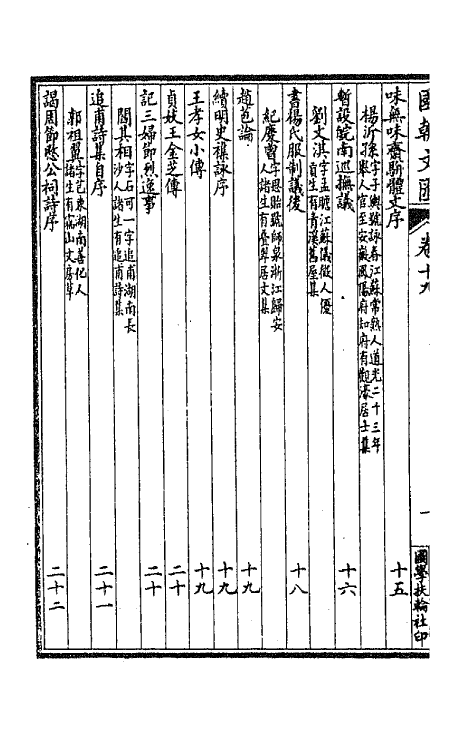 國朝文匯 卷十九 一 國學扶輪社印
味無味齋駢體文序 十五
楊沂孫 字子輿號詠春江蘇常熟人道光二十三年
舉人官至安徽鳳陽府知府有觀濠居士集
暫設皖南巡撫議 十六
劉文淇 字孟瞻江蘇儀徵人優
貢生有青溪舊屋集
書楊氏服制議後 十八
紀慶曾 字思貽號師泉浙江歸安
人諸生有疊翠居文集
趙苞論 十九
續明史襍詠序 十九
王孝女小傳 十九
貞妓王金芝傳 二十
記三婦節烈逸事 二十
閻其相 字石可一字追甫湖南長
沙人諸生有追甫詩集
追甫詩集自序 二十一
郭祖翼 字芑東湖南善化人
諸生有嵞山文房草
謁周節愍公祠詩序 二十二